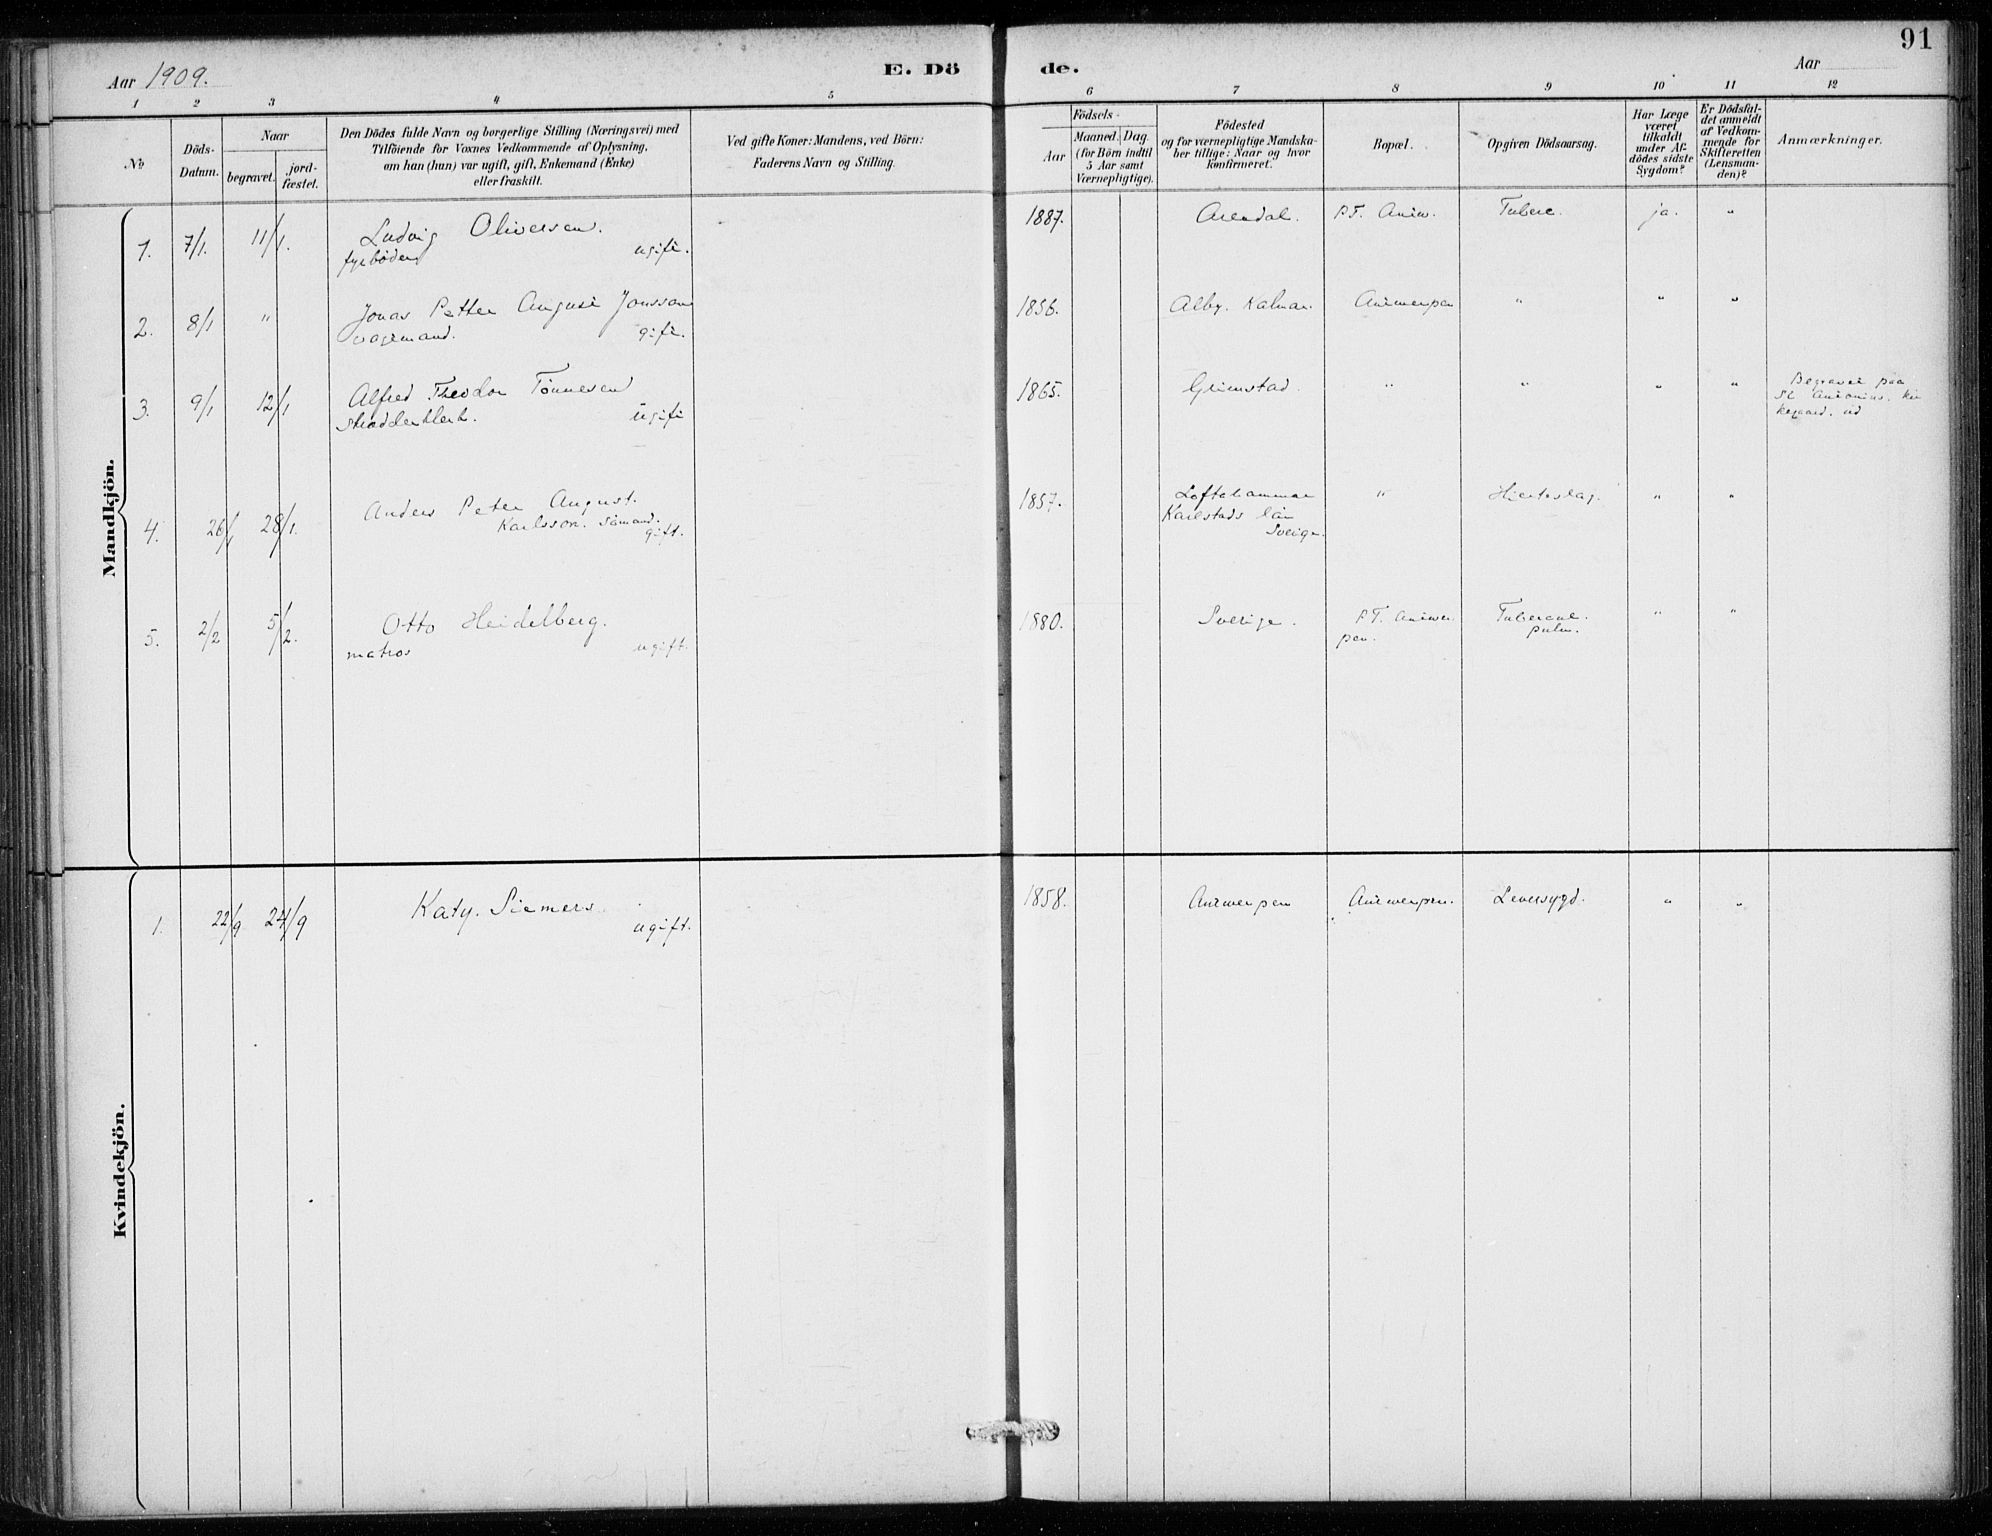 91
Aar 1909.
E. Dö
de.
Aar
1 2 3 4 5 6 7 8 9 10 11 12
No
Döds-
Datum.
Naar
begravet.
jord-
fæstet.
Den Dödes fulde Navn og borgerlige Stilling (Næringsvei) med
Tilföiende for Voxnes Vedkommende af Oplysning,
om han (hun) var ugift, gift, Enkemand (Enke)
eller fraskilt.
Ved gifte Koner: Mandens, ved Börn:
Faderens Navn og Stilling.
Födsels-
Aar
Maaned. Dag.
(for Börn indtil
5 Aar samt
Værnepligtige).
Födested
og for værnepligtige Mandska-
ber tillige: Naar og hvor
konfirmeret.
Bopæl.
Opgiven Dödsaarsag.
Har Læge
været
tilkaldt
under Af-
dödes sidste
Sygdom?
Er Dödsfal-
det anmeldt
af Vedkom-
mende for
Skifteretten
(Lensman-
den)?
Anmærkninger.
Mandkjön.
1. 7/1. 11/1. Ludvig Oliversen. 1887. Arendal. P.T. Antw. Tuberc. ja. "
fyrböder ugift.
2. 8/1 " Jonas Petter August Jonsson 1856. Alby. Kalmar. Antwerpen " " "
vagtmand. gift.
3. 9/1 12/1 Alfred Theodor Tönnesen 1865. Grimstad. " " " " Begravet paa
St Antonius.
ugift
4. 26/1 28/1. Anders Peter August. 1857. Loftahammar " Hjerteslag. " "
Karlsson. sömand. Karlstads län
gift. Sverige.
5. 2/2 5/2. Otto Heidelberg. 1880. Sverige. P.T. Antwer- Tubercul. " "
matros ugift. pen. pulm.
Kvindekjön.
1. 22/9 24/9 Katy. Siemers 1858. Antwerpen Antwerpen. Leversygd. " "
ugift.